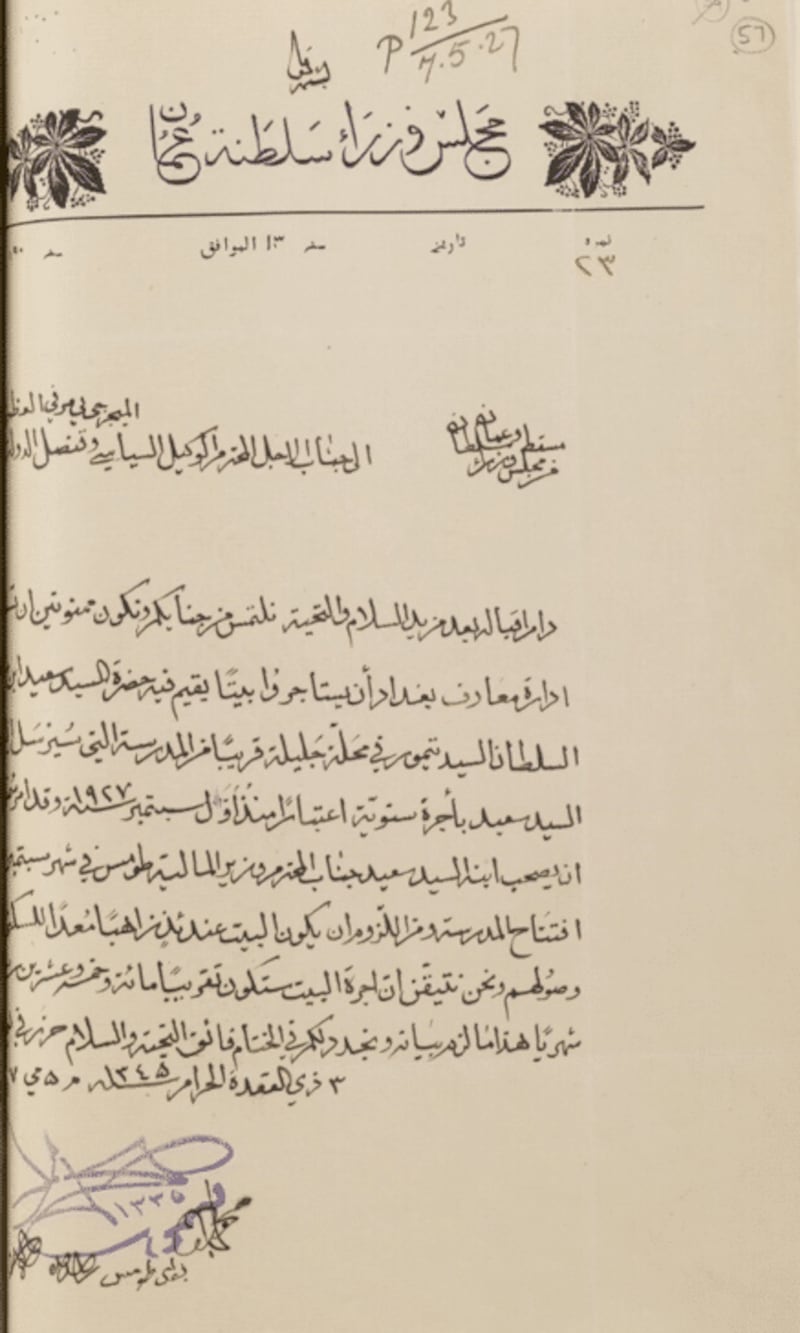 P 123
7.5.27
57
مجلس وزراء سلطنة عُمان
نمره تاريخ سنه ١٣ الموافق سنه
٢٣
الميجر جي بي مرفي
مسقط وعمان
سلطانه
من مجلس وزراء
الى جناب الاجل المحترم الوكيل السياسي وقنصل الدولة
دام اقباله بعد مزيد السلام والتحية نلتمس من جنابكم ونكون ممنونين ان
ادارة معارف بغداد أن يستاجروا بيتًا يقيم فيه حضرة السيد سعيد ابن
السلطان السيد تيمور في محلّة جَليلة قريبًا من المدرسة التي سَيُرسَل
السيد سعيد بأجرة سنويّة اعتبارًا منذ أوّل سبتمبر سنة ١٩٢٧ وقد امر
ان يصحب ابنه السيد سعيد جناب المحترم وزير المالية طومس في شهر سبتمبر
افتتاح المدرسة ومن اللزوم ان يكون البيت عندئذٍ زاهبًا مُعدًا للسكن
وصولهم ونحن نتيقّن ان اجرة البيت ستكون تقريبًا مائة وخمسة وعشرين
شهريًا هذا ما لزم بيانه ونجدد لكم في الختام فائق التحية والسلام حرر في
٣ ذي القعدة الحرام سنة ١٣٤٥ م ٥ مي
١٣٣٥
طومس